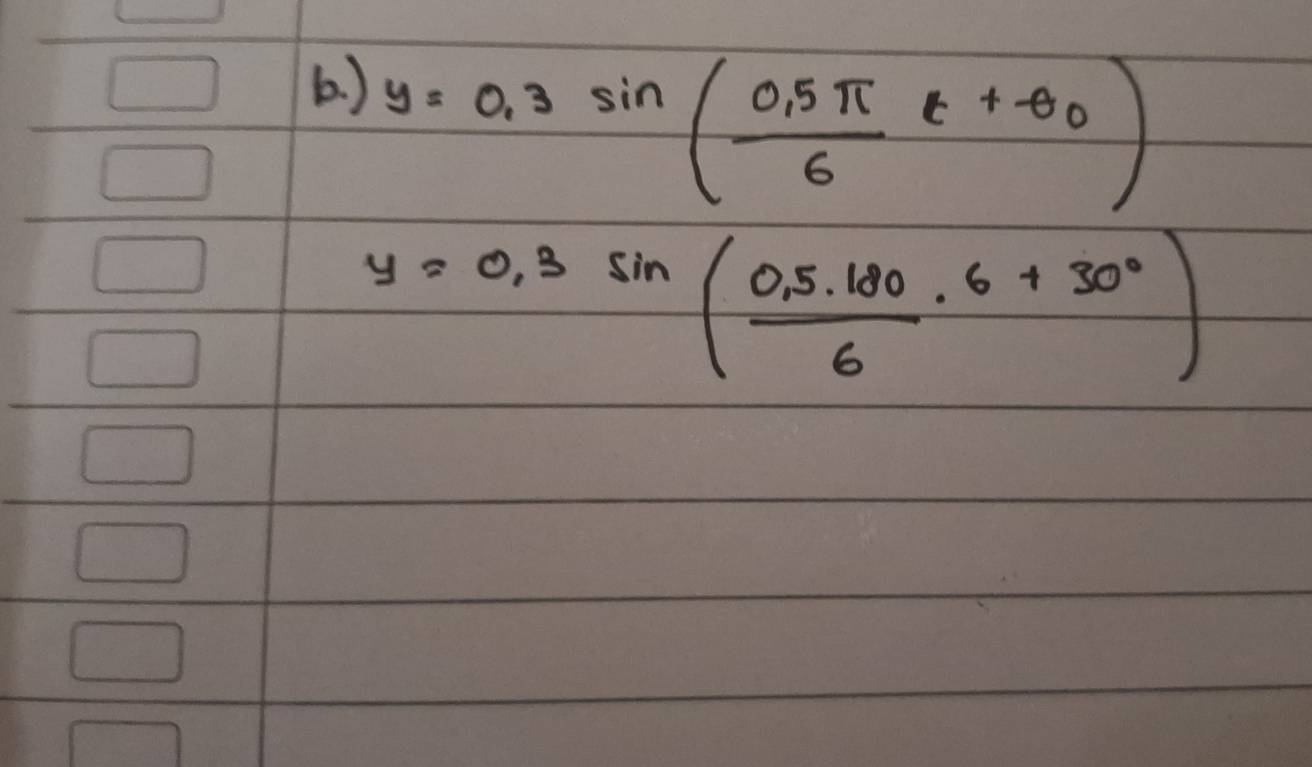 b.) y = 0,3 sin ( 0,5 π / 6 t + θ0 )
y = 0,3 sin ( 0,5 . 180 / 6 . 6 + 30° )